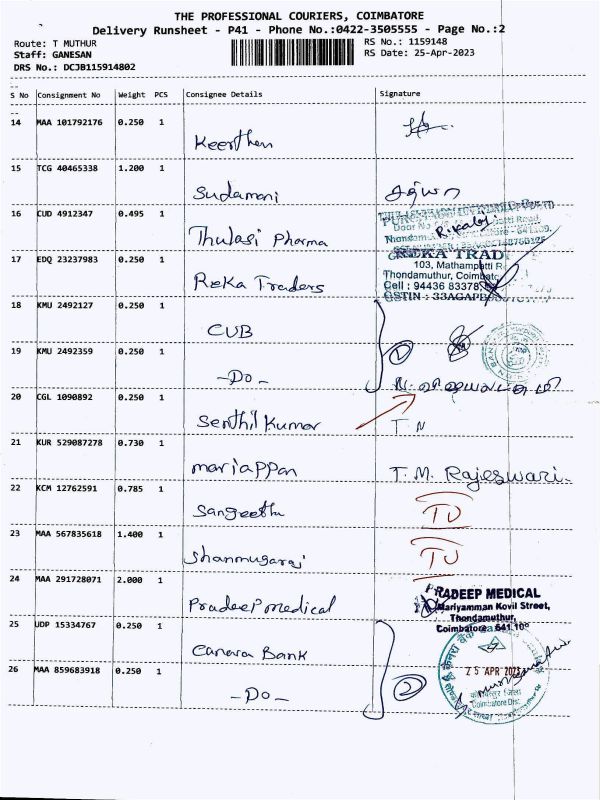 THE PROFESSIONAL COURIERS, COIMBATORE
Delivery Runsheet - P41 - Phone No.:0422-3505555 - Page No.:2
Route: T MUTHUR
RS No.: 1159148
Staff: GANESAN
RS Date: 25-Apr-2023
DRS No.: DCJB115914802
S No Consignment No Weight PCS Consignee Details Signature
14 MAA 101792176 0.250 1
Keerthan
15 TCG 40465338 1.200 1
Sudamani
16 CUD 4912347 0.495 1
Thulasi Pharma
17 EDQ 23237983 0.250 1
Reka Traders
REKA TRAD
103, Mathampatti R
Thondamuthur, Coimbato
Cell : 94436 83378
GSTIN : 33AGAPB
18 KMU 2492127 0.250 1
CUB
1
19 KMU 2492359 0.250 1
-Do-
20 CGL 1090892 0.250 1
Senthil Kumar T N
21 KUR 529087278 0.730 1
mariappan T. M. Rajeswari.
22 KCM 12762591 0.785 1
Sangeetha TU
23 MAA 567835618 1.400 1
Shanmugaraj TU
24 MAA 291728071 2.000 1
Pradeep medical
PRADEEP MEDICAL
Mariyamman Kovil Street,
Thondamuthur,
Coimbatore 641 109
25 UDP 15334767 0.250 1
Canara Bank
25 APR 2023
26 MAA 859683918 0.250 1
-Do-
2
Coimbatore Dist